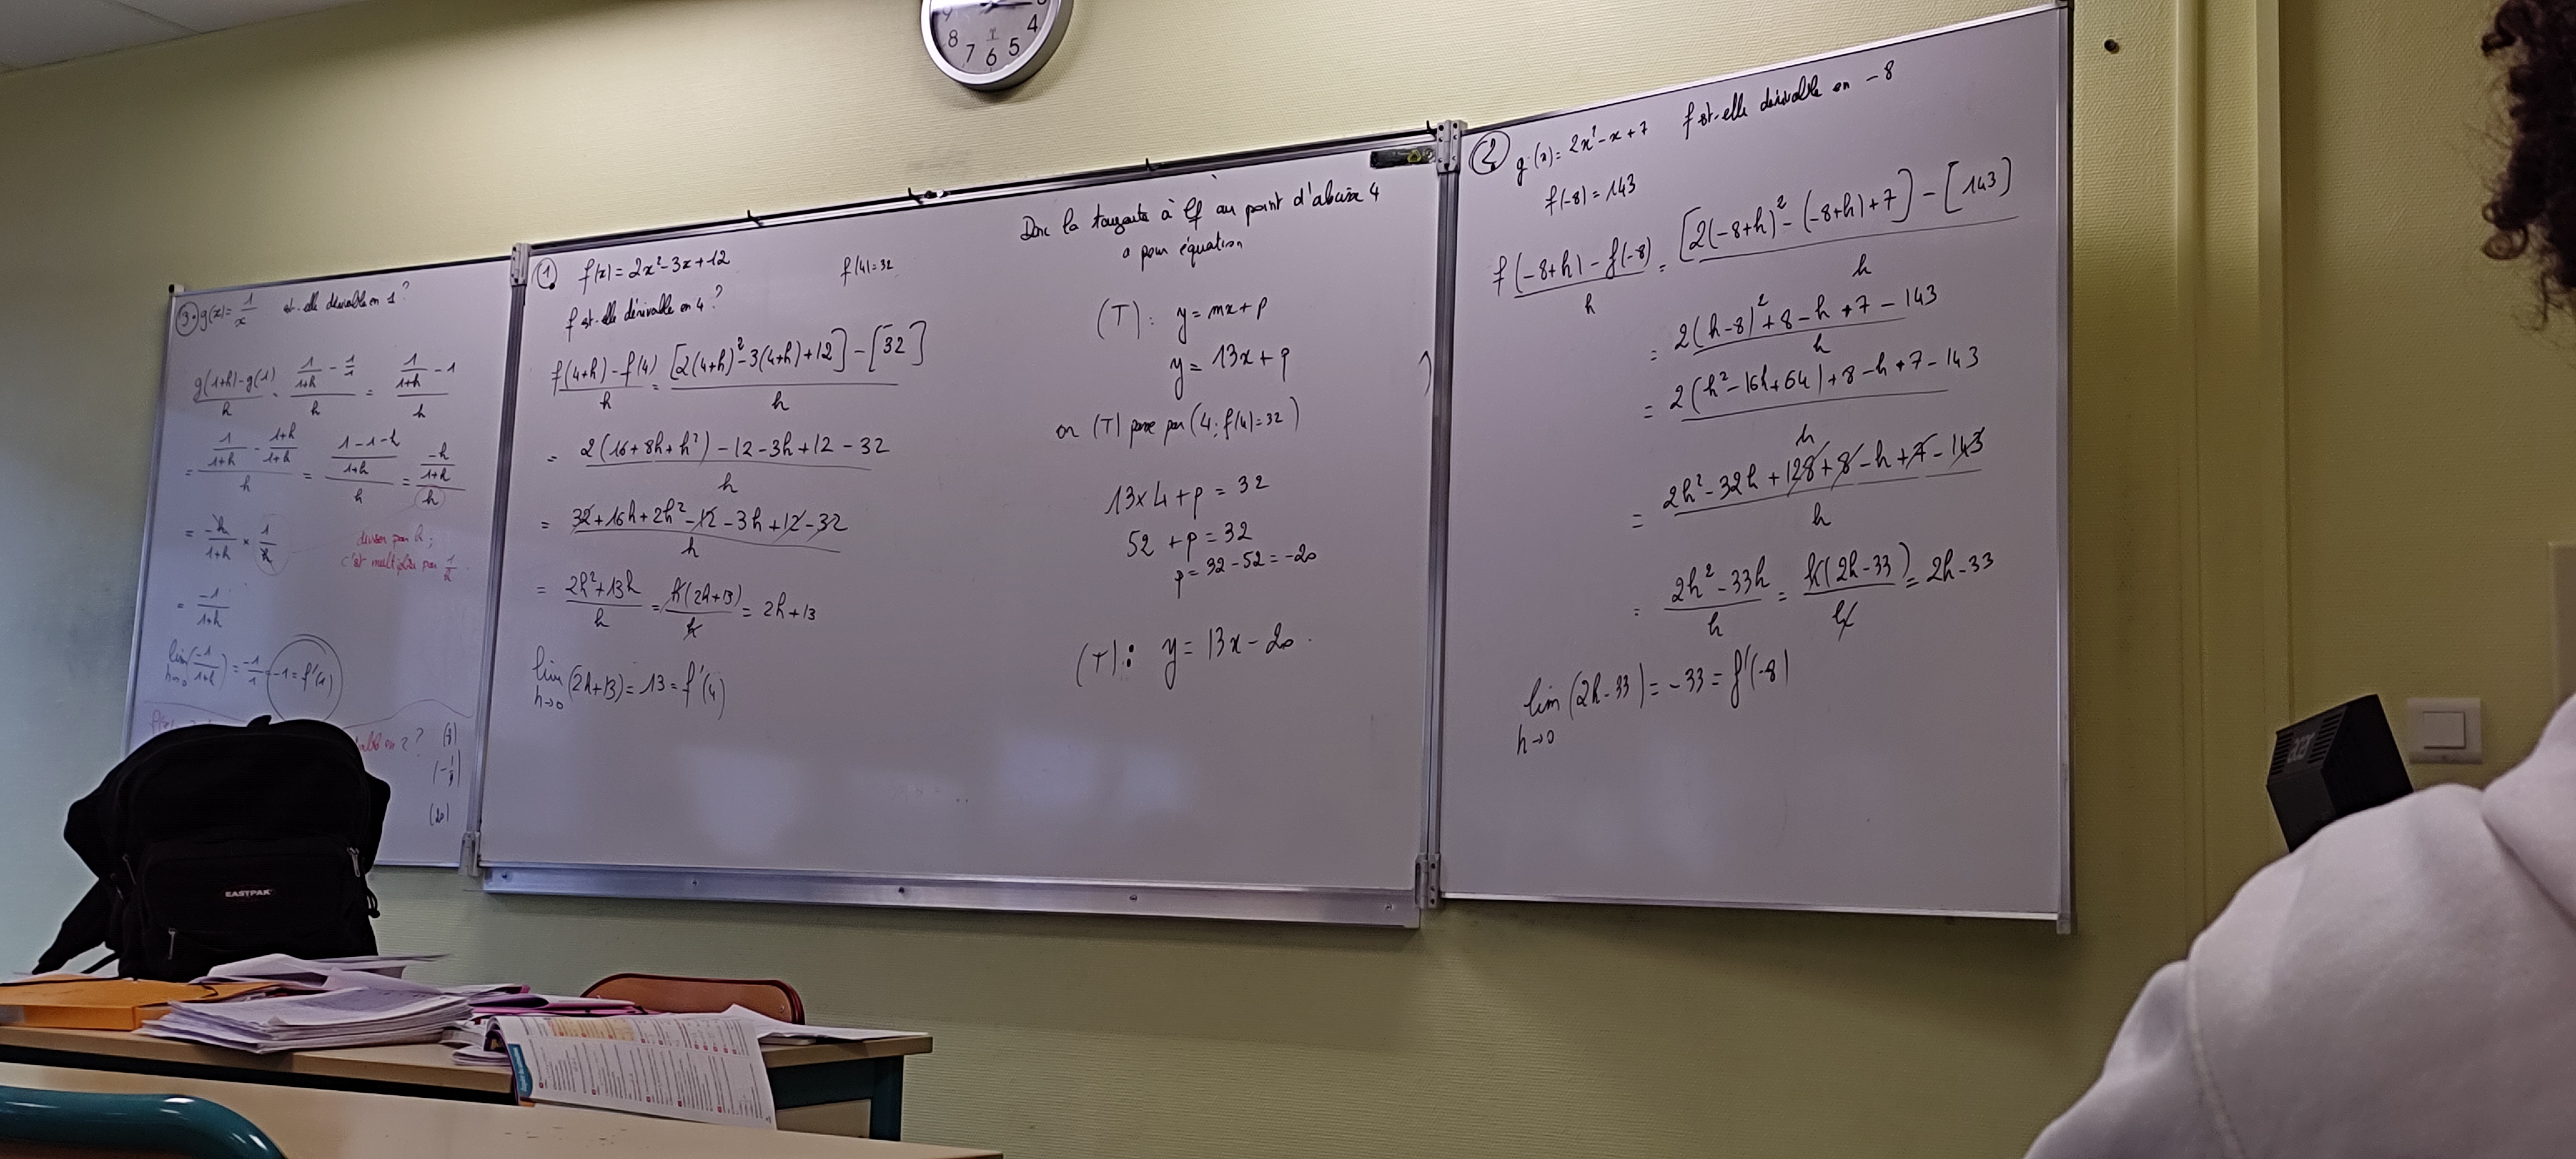 9 8 7 6 5 4
3. g(x) = 1/x est-elle dérivable en 1 ?
(g(1+h) - g(1))/h = (1/(1+h) - 1/1)/h = (1/(1+h) - 1)/h
= (1/(1+h) - (1+h)/(1+h))/h = ((1-1-h)/(1+h))/h = (-h/(1+h))/h
= -h/(1+h) × 1/h
diviser par h ;
c'est multiplier par 1/h
= -1/(1+h)
lim h→0 (-1/(1+h)) = -1/1 = -1 = f'(1)
en 2 ?
EASTPAK
1. f(x) = 2x² - 3x + 12 f(4) = 32
f est-elle dérivable en 4 ?
(f(4+h) - f(4))/h = ([2(4+h)² - 3(4+h) + 12] - [32])/h
= (2(16 + 8h + h²) - 12 - 3h + 12 - 32)/h
= (32 + 16h + 2h² - 12 - 3h + 12 - 32)/h
= (2h² + 13h)/h = h(2h+13)/h = 2h + 13
lim h→0 (2h+13) = 13 = f'(4)
Donc la tangente à Cf au point d'abscisse 4
a pour équation
(T) : y = mx + p
y = 13x + p
or (T) passe par (4 ; f(4) = 32)
13×4 + p = 32
52 + p = 32
p = 32 - 52 = -20
(T) : y = 13x - 20.
2 g(x) = 2x² - x + 7 f est-elle dérivable en -8
f(-8) = 143
(f(-8+h) - f(-8))/h = ([2(-8+h)² - (-8+h) + 7] - [143])/h
= (2(h-8)² + 8 - h + 7 - 143)/h
= (2(h² - 16h + 64) + 8 - h + 7 - 143)/h
= (2h² - 32h + 128 + 8 - h + 7 - 143)/h
= (2h² - 33h)/h = h(2h-33)/h = 2h - 33
lim h→0 (2h-33) = -33 = f'(-8)
acer